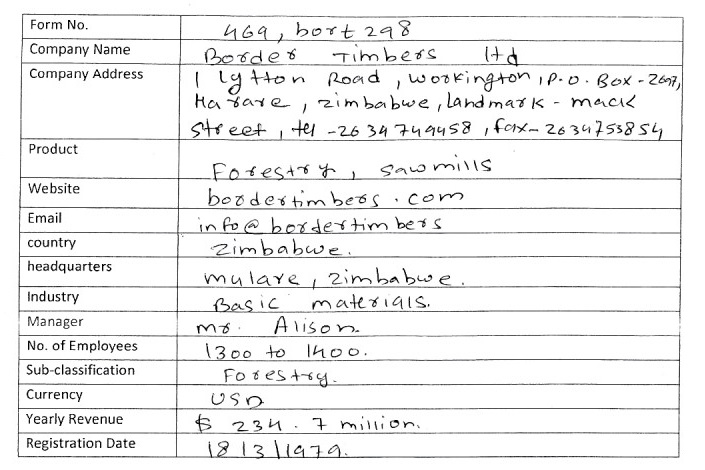 Form No. 469, bort 298
Company Name Border Timbers ltd
Company Address 1 Lytton Road, workington, P.O. Box - 2697,
Harare, zimbabwe, landmark - mack
street, tel - 26 34 749458, fax - 2634753854
Product Forestry, sawmills
Website bordertimbers.com
Email info@bordertimbers
country zimbabwe.
headquarters mulare, zimbabwe.
Industry Basic materials.
Manager mr. Alison.
No. of Employees 1300 to 1400.
Sub-classification Forestry.
Currency USD
Yearly Revenue $ 234.7 million.
Registration Date 18|3|1979.